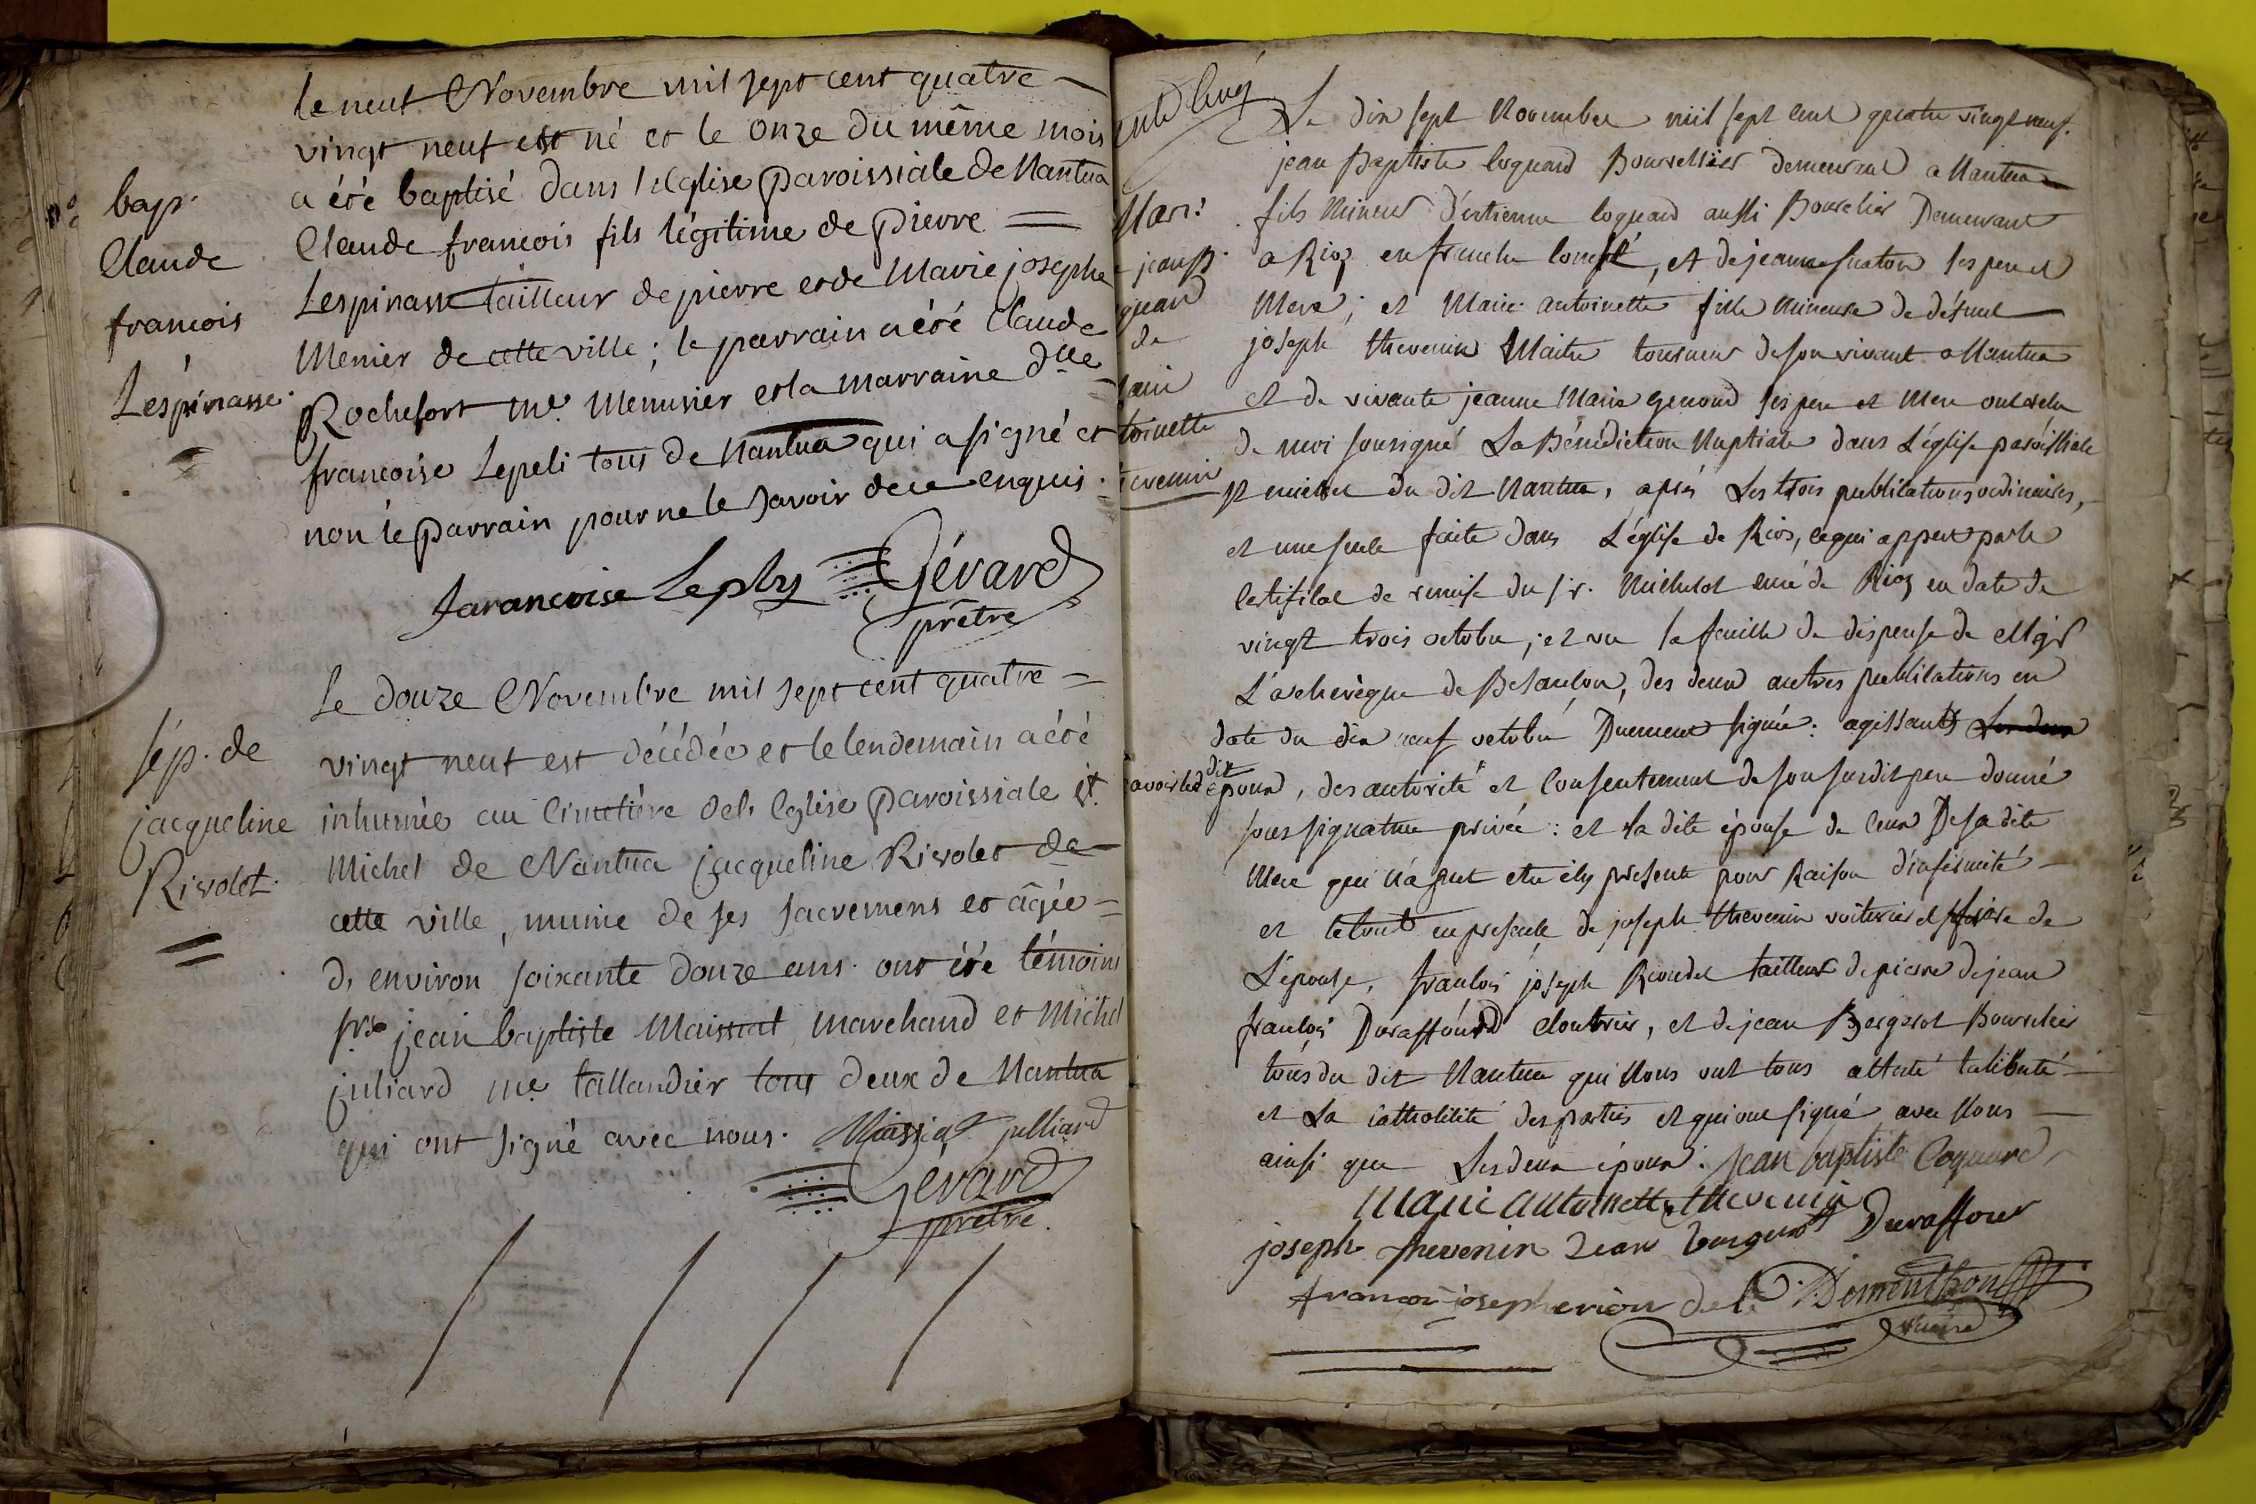 bap.
Claude
francois
Lespinasse.
le neuf Novembre mil sept cent quatre
vingt neuf est né et le onze du même mois
a été baptisé dans l'Eglise Paroissiale de Nantua
Claude francois fils légitime de pierre
Lespinasse tailleur de pierre et de Marie josephe
Menier de cette ville; le parrain a été Claude
Rochefort me. Menuisier et la marraine dlle
francoise Lepeli tous de Nantua qui a signé et
non le parrain pour ne le savoir de ce enquis.
farancoise Leply Gérard
prêtre
sép. de
jacqueline
Rivolet.
Le douze Novembre mil sept cent quatre
vingt neuf est décédée et le lendemain a été
inhumée au Cimetiére de l'Eglise Paroissiale st.
Michel de Nantua jacqueline Rivolet de
cette ville, munie de ses sacremens et âgée
d'environ soixante douze ans. ont été témoins
srs jean baptiste Maissiat marchand et Michel
juliard me tallandier tous deux de Nantua
qui ont signé avec nous. Maissiat julliard
Gérard
prêtre.
Mari:
jean B.
quard
de
toinette
evenin
Le dix sept Novembre mil sept cent quatre vingt neuf.
jean Baptiste Coquard Bourrellier demeurant a Nantua
fils Mineur d'estienne Coquard aussi Bourelier Demeurant
a Rioz en franche Comté, et de jeanne ses pere et
Mere; et Marie antoinette fille Mineure de défunt
joseph thevenin Maitre tourneur de son vivant a Nantua
et de vivante jeanne Marie genoud ses pere et Mere ont reçu
de moi sousigné La Bénédiction Nuptiale dans L'église paroissiale
st michel du dit Nantua, aprés Les trois publications ordinaires,
et une seule faite dans L'église de Rios, ce qui appert par le
Certificat de remise du sr. Michelot curé de Rioz en date de
vingt trois octobre; et vu la feuille de dispense de Mgr
L'archevêque de Besançon, des deux autres publications en
date du dix neuf octobre Duement signée: agissants Les deux
savoir led dit époux, des autorité et Consentement de son susdit pere donné
sous signature privée: et la dite épouse de ceux De sa dite
Mere qui n'a peut etre ély présente pour Raison d'infirmité
et le tout en presence de joseph thevenin voiturier et frere de
L'épouse, françois joseph Rioudet tailleur de pierre de jean
françois Duraffourd Cloutrier, et de jean Bergerot Bourelier
tous du dit Nantua qui Nous ont tous attesté la liberté
et La catholicité des parties et qui ont signé avec Nous
ainsi que Les deux époux. Jean baptiste Coquard
Marie antoinette thevenin
joseph thevenin Jean bergerot Duraffour
francois joseph Dementhon
vicaire